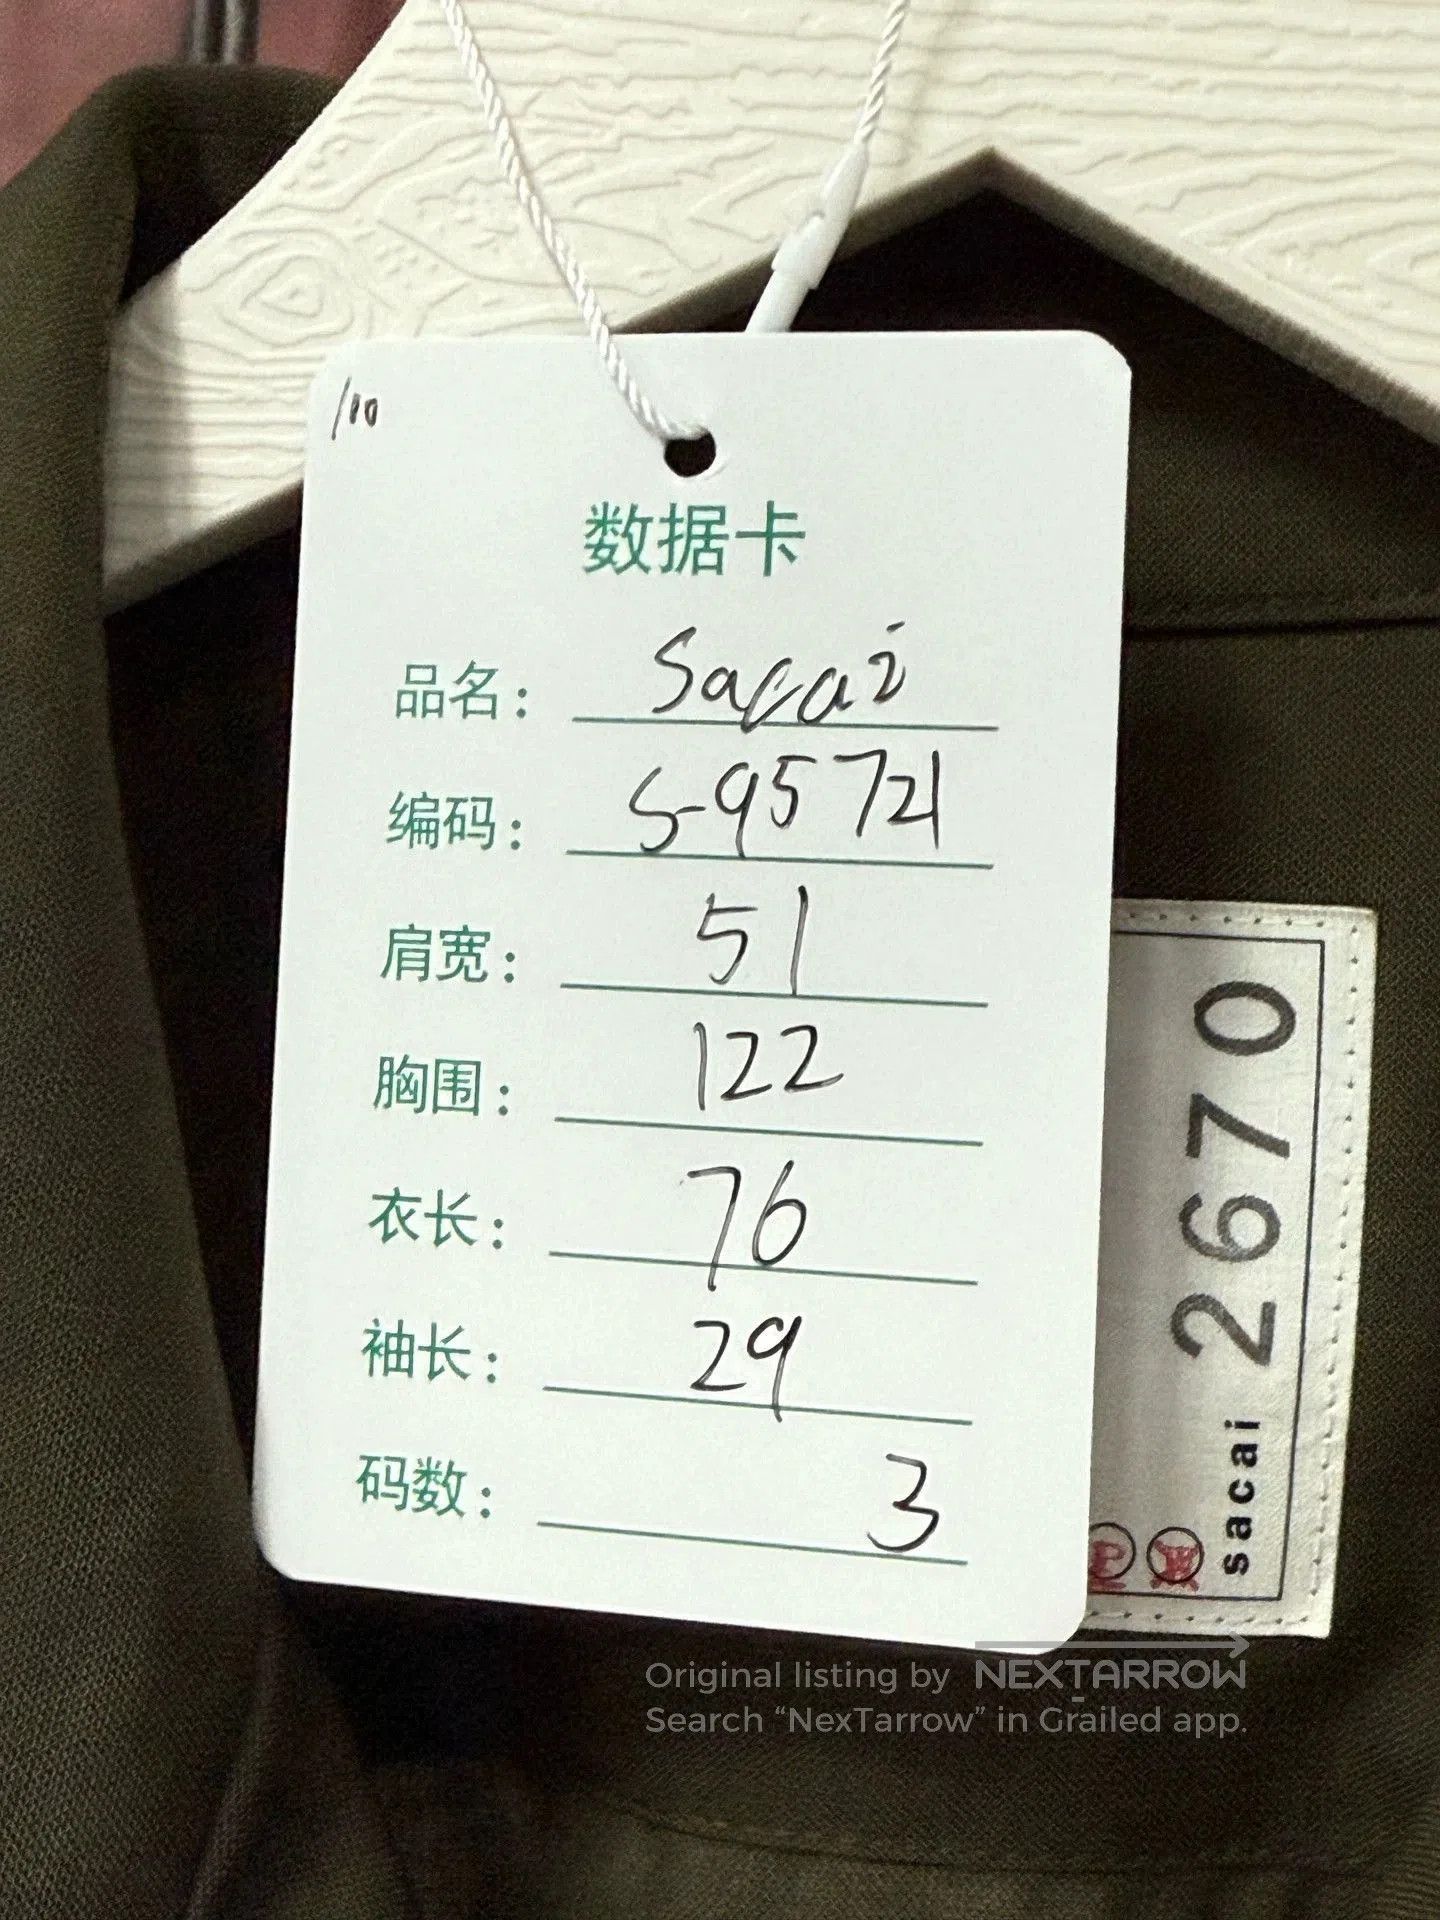 /110
数据卡
品名： Sacai
编码： S-95721
肩宽： 51
胸围： 122
衣长： 76
袖长： 29
码数： 3
sacai 2670
Original listing by NEXTARROW
Search “NexTarrow” in Grailed app.